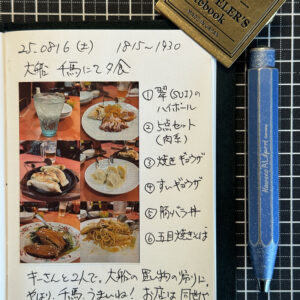 25.0816(土) 1815〜1930
大船 千馬にて夕食
①翠(SUI)の
ハイボール
②5点セット
(肉系)
③焼きギョウザ
④すいギョウザ
⑤筋バラ丼
⑥五目焼きそば
キーさんと2人で、大船の買い物の帰りに。
やはり、千馬、うまいね! お店は
TRAVELER'S
notebook
Kaweco AL Sport